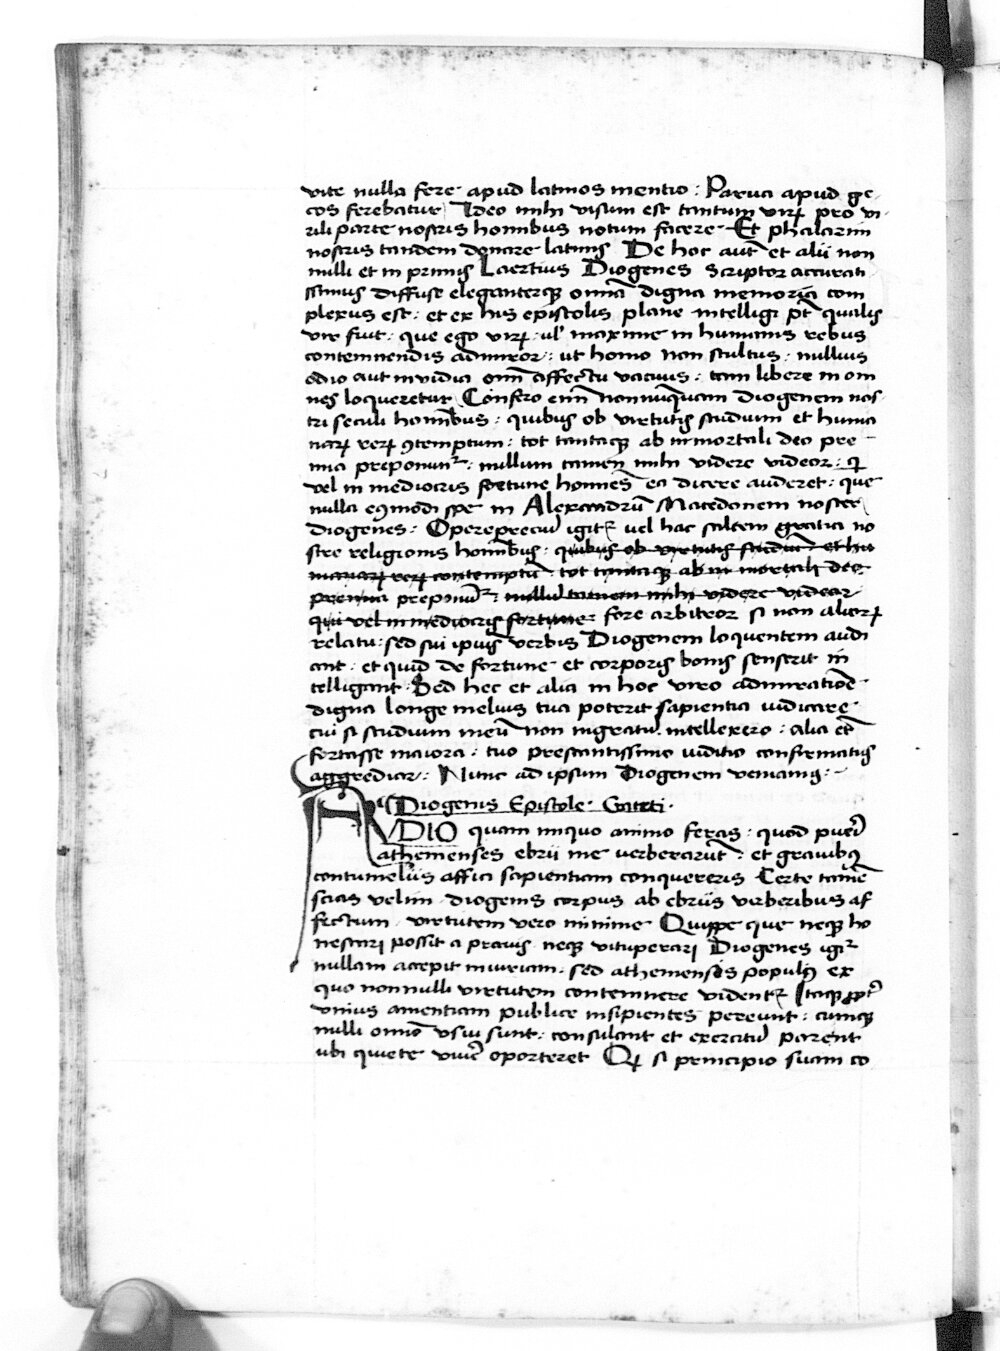 vite nulla fere apud latinos mentio : Parua apud gre
cos ferebatur Ideo mihi visum est tantum virꝝ pro vi
rili parte nostris hominibus notum facere Et phalarim
nostris tandem donare latinis De hoc aut̄ et alii non
nulli et in primis Laertius Diogenes Scriptor accurati
ssimus diffuse eleganterqꝫ omnia digna memoria com
plexus est : et ex his epistolis plane intelligi pt̄ qualis
vir fuit : que ego virꝝ ul' maxime in humanis rebus
contemnendis admiror : ut homo non stultus : nullius
odio aut inuidia omī affectu vacuus : tam libere in om
nes loqueretur Confero enī nonnūquam diogenem nos
tri seculi hominibus : quibus ob virtutis studium et huma
narꝝ rerꝝ ꝯtemptum : tot tantaqꝫ ab inmortali deo pre
mia preponunt᷑ : nullum tamen mihi videre videor : qi
vel in mediocris fortune homines ea dicere auderet : que
nulla eꝰmodi spe in Alexandrū Macedonem noster
diogenes : Opereprecium igit᷑ vel hac saltem gratia no
stre religionis hominibus : quibus ob virtutis studiū et hu
manarꝝ rerꝝ contemptū : tot tantaqꝫ ab in mortali deo
premia preponūt᷑ : nullū tamen mihi videre videor
qui vel in mediocris fortune fore arbitror si non aliorꝝ
relatu : sed sui ipius verbis Diogenem loquentem audi
ant : et quid de fortune et corporis bonis senserit in
telligant Sed hec et alia in hoc viro admiratiōe
digna longe melius tua poterit sapientia iudicare
cui si studium meū non ingratū intellexero : alia et̄
fortasse maiora : tuo prestantissimo iuditio confirmatus
aggrediar : Nunc ad ipsum Diogenem veniamus :
Diogenis Epistole
AVDIO quam iniquo animo feras : quod pueri
athenienses ebrii me verberarunt : et grauibꝰ
contumeliis affici sapientiam conquereris Certe tamē
scias velim diogenis corpus ab ebriis verberibus af
fectum virtutem vero minime Quippe que neqꝫ ho
nestari possit a prauis neqꝫ vituperari Diogenes igit᷑
nullam accepit iniuriam : sed atheniensis populꝰ ex
quo nonnulli virtutem contemnere vident᷑ Itaqꝫ ꝓpt᷑
vnius amentiam publice insipientes pereunt : cumqꝫ
nulli omnio vsui sunt : consulant et exercitui parent
ubi quiete viuere oporteret Qꝫ si principio suam co